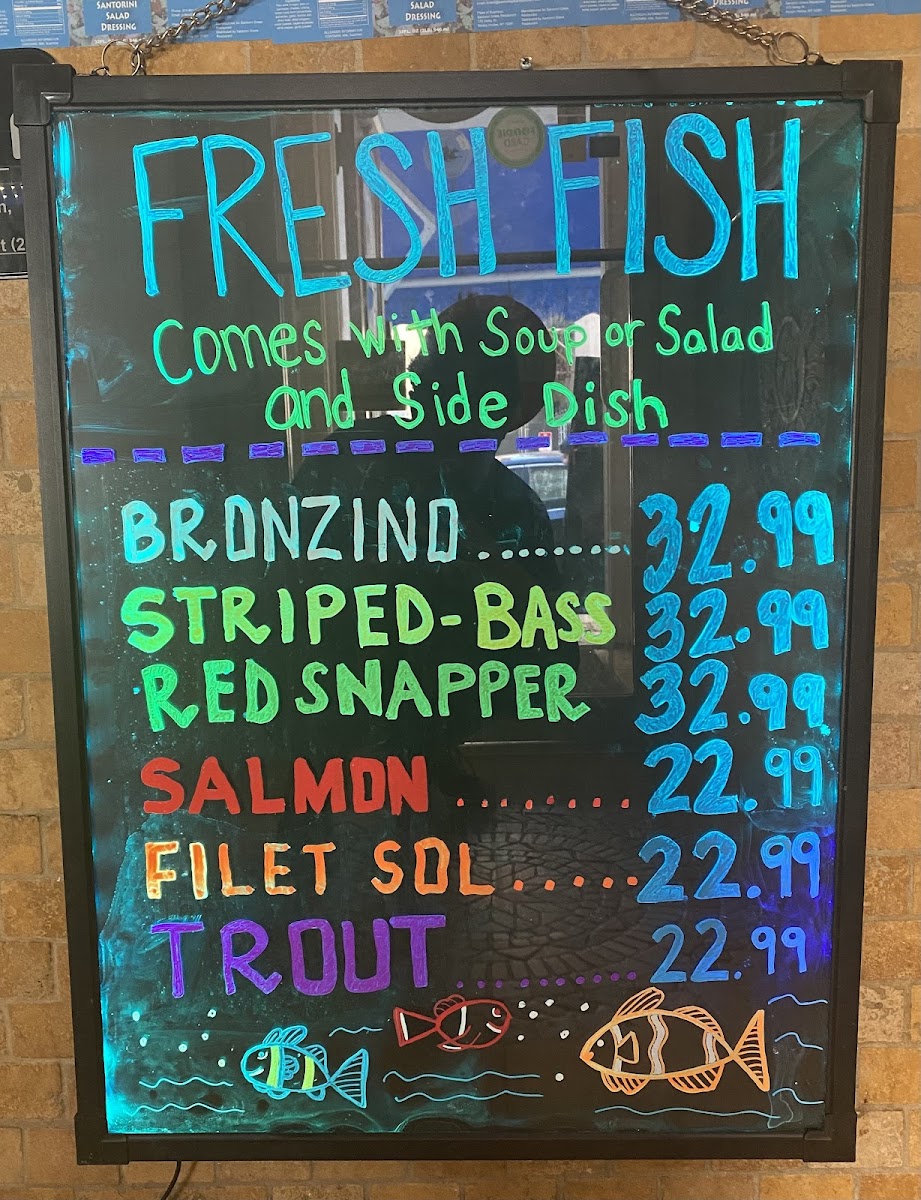 SANTORINI SALAD DRESSING
SALAD DRESSING
FRESH FISH
Comes with Soup or Salad
and Side Dish
BRONZINO ......... 32.99
STRIPED-BASS 32.99
RED SNAPPER 32.99
SALMON ........ 22.99
FILET SOL ..... 22.99
TROUT ........... 22.99